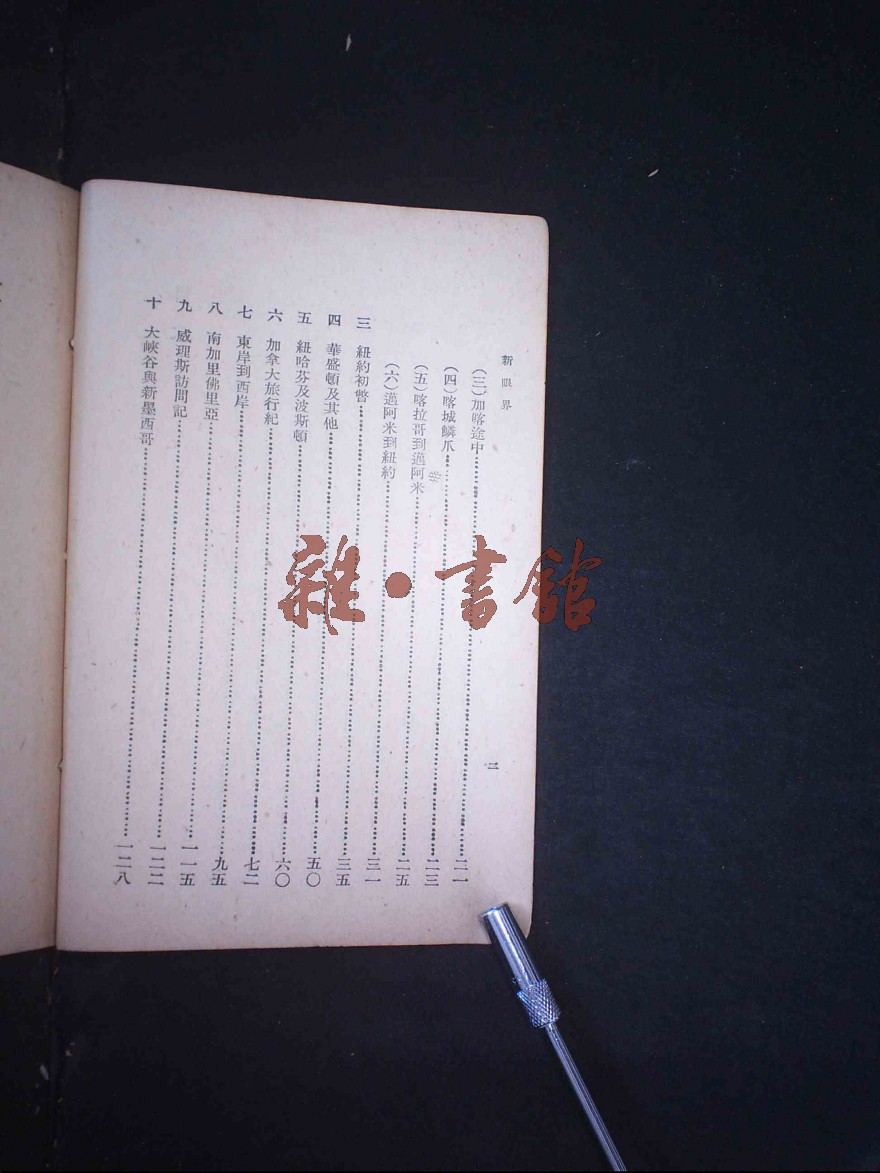 新眼界
二
(三)加喀途中……二一
(四)喀城鱗爪……二三
(五)喀拉哥到邁阿米……二五
(六)邁阿米到紐約……三一
三 紐約初瞥……三五
四 華盛頓及其他……五〇
五 紐哈芬及波斯頓……六〇
六 加拿大旅行紀……七二
七 東岸到西岸……九五
八 南加里佛里亞……一一五
九 威理斯訪問記……一二二
十 大峽谷與新墨西哥……一二八
雜·書館